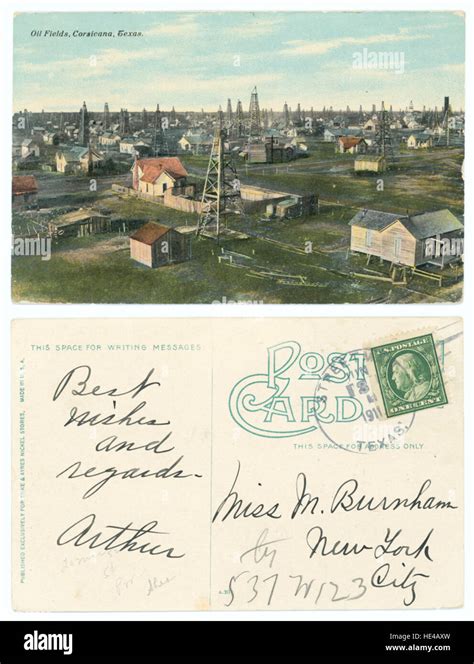 Oil Fields, Corsicana, Texas.
THIS SPACE FOR WRITING MESSAGES
POST
CARD
THIS SPACE FOR ADDRESS ONLY
MADE IN U. S. A.
PUBLISHED EXCLUSIVELY FOR & KRES NICKEL STORES,
U.S. POSTAGE
ONE CENT
JUN
1911
TEXAS.
Best
wishes
and
regards-
Arthur
Miss M. Burnham
New York
City
by
537 W 123
alamy
Image ID: HE4AXW
www.alamy.com